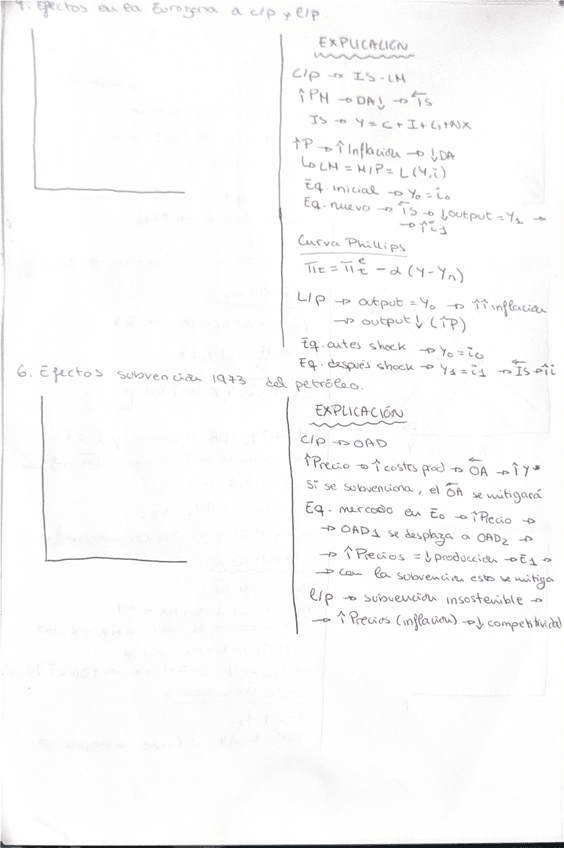 7. Efectos en la Eurozona a c/p y l/p.
EXPLICACIÓN
C/p → IS-LM
↑PM → DA↓ → ←IS
IS → Y = C + I + G + NX
↑P → ↑Inflación → ↓DA
↳ LM = M/P = L(Y,i)
Eq. inicial → Y₀ = i₀
Eq. nuevo → ←IS → ↓output = Y₁ →
→ ↑i₁
Curva Phillips
πt = πt^e - α (Y-Yn)
L/p → output = Y₀ → ↑↑ inflación
→ output ↓ (↑P)
Eq. antes shock → Y₀ = i₀
Eq. después shock → Y₁ = i₁ → ←IS → ↑i
6. Efectos subvención 1973 del petróleo.
EXPLICACIÓN
C/p → OAD
↑Precio → ↑costes prod → ←OA → ↑Y*
Si se subvenciona, el ←OA se mitigará
Eq. mercado en E₀ → ↑Precio →
→ OAD1 se desplaza a OAD₂ →
→ ↑Precios = ↓producción → E₁ →
→ con la subvención esto se mitiga
l/p → subvención insostenible →
→ ↑Precios (inflación) → ↓ competitividad